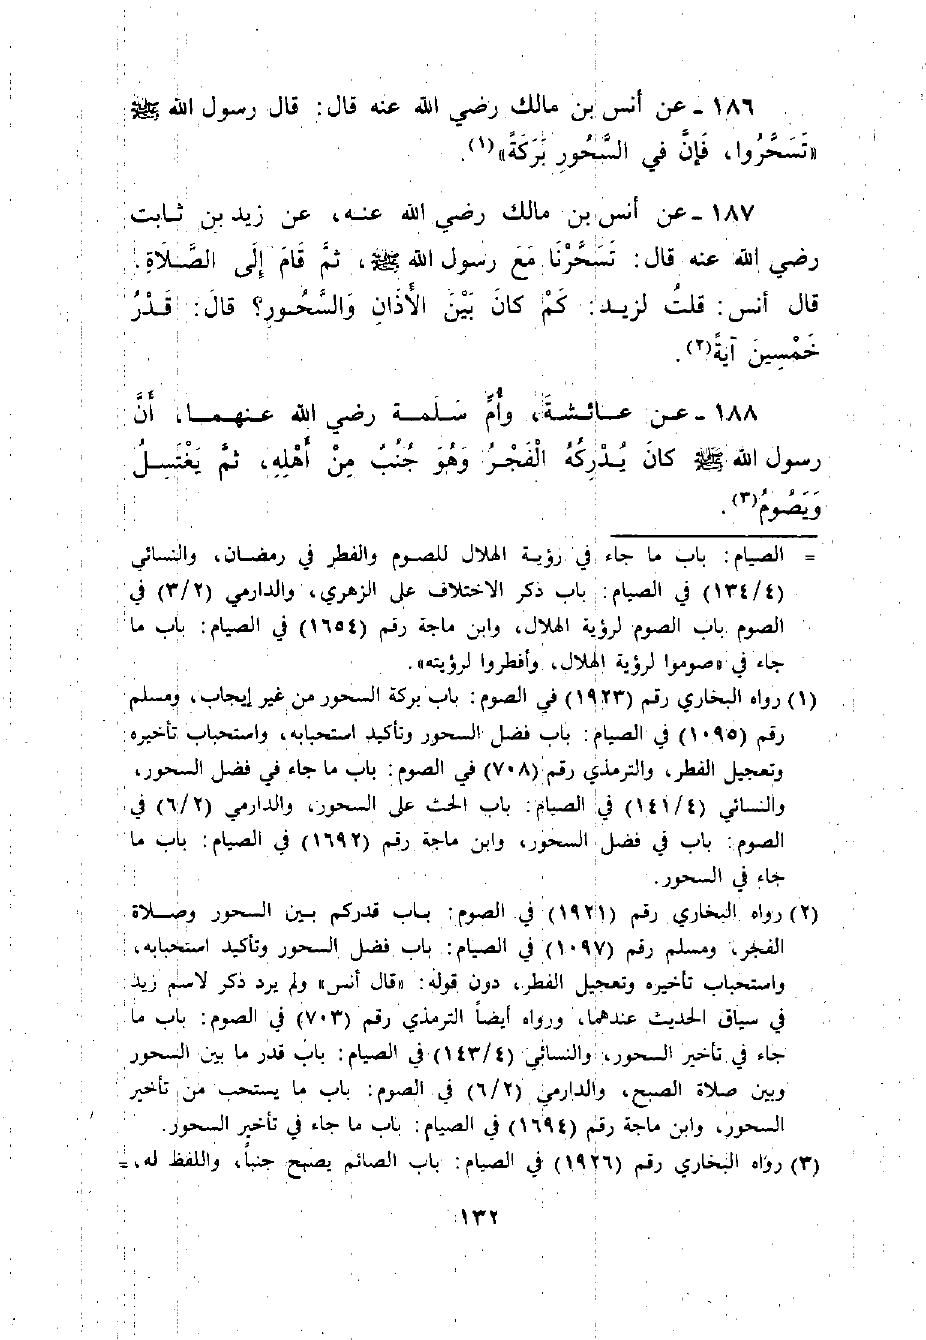 ١٨٦ ـ عن أنس بن مالك رضي الله عنه قال: قال رسول الله ﷺ
«تَسَحَّرُوا، فَإِنَّ في السَّحُورِ بَرَكَةً»(١).
١٨٧ ـ عن أنس بن مالك رضي الله عنه، عن زيد بن ثابت
رضي الله عنه قال: تَسَحَّرْنَا مَعَ رسول الله ﷺ، ثمَّ قَامَ إِلَى الصَّلَاةِ.
قال أنس: قلتُ لزيد: كَمْ كانَ بَيْنَ الأَذَانِ وَالسَّحُورِ؟ قالَ: قَدْرُ
خَمْسِينَ آيَةً(٢).
١٨٨ ـ عن عائشةَ، وأُمِّ سَلَمة رضي الله عنهما، أَنَّ
رسول الله ﷺ كانَ يُدْرِكُهُ الْفَجْرُ وَهُوَ جُنُبٌ مِنْ أَهْلِهِ، ثمَّ يَغْتَسِلُ
وَيَصُومُ(٣).
= الصيام: باب ما جاء في رؤية الهلال للصوم والفطر في رمضان، والنسائي
(١٣٤/٤) في الصيام: باب ذكر الاختلاف على الزهري، والدارمي (٣/٢) في
الصوم باب الصوم لرؤية الهلال، وابن ماجة رقم (١٦٥٤) في الصيام: باب ما
جاء في «صوموا لرؤية الهلال، وأفطروا لرؤيته».
(١) رواه البخاري رقم (١٩٢٣) في الصوم: باب بركة السحور من غير إيجاب، ومسلم
رقم (١٠٩٥) في الصيام: باب فضل السحور وتأكيد استحبابه، واستحباب تأخيره
وتعجيل الفطر، والترمذي رقم (٧٠٨) في الصوم: باب ما جاء في فضل السحور،
والنسائي (١٤١/٤) في الصيام: باب الحث على السحور، والدارمي (٦/٢) في
الصوم: باب في فضل السحور، وابن ماجة رقم (١٦٩٢) في الصيام: باب ما
جاء في السحور.
(٢) رواه البخاري رقم (١٩٢١) في الصوم: باب قدركم بين السحور وصلاة
الفجر، ومسلم رقم (١٠٩٧) في الصيام: باب فضل السحور وتأكيد استحبابه،
واستحباب تأخيره وتعجيل الفطر، دون قوله: «قال أنس» ولم يرد ذكر لاسم زيد
في سياق الحديث عندهما، ورواه أيضاً الترمذي رقم (٧٠٣) في الصوم: باب ما
جاء في تأخير السحور، والنسائي (١٤٣/٤) في الصيام: باب قدر ما بين السحور
وبين صلاة الصبح، والدارمي (٦/٢) في الصوم: باب ما يستحب من تأخير
السحور، وابن ماجة رقم (١٦٩٤) في الصيام: باب ما جاء في تأخير السحور.
(٣) رواه البخاري رقم (١٩٢٦) في الصيام: باب الصائم يصبح جنباً، واللفظ له، =
١٣٢